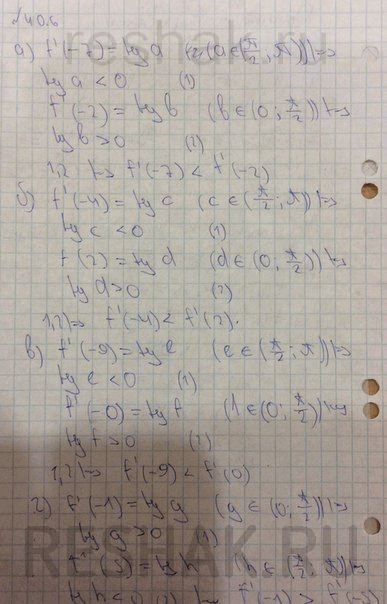 №40.6
reshak.ru
а) f'(-7) = tg a (a ∈ (π/2; π)) |=>
tg a < 0 (1)
f'(-2) = tg b (b ∈ (0; π/2)) |=>
tg b > 0 (2)
1,2 |=> f'(-7) < f'(-2)
б) f'(-4) = tg c (c ∈ (π/2; π)) |=>
tg c < 0 (1)
f(2) = tg d (d ∈ (0; π/2)) |=>
tg d > 0 (2)
1,2) => f'(-4) < f'(2).
в) f'(-9) = tg e (e ∈ (π/2; π)) |=>
tg e < 0 (1)
f'(-0) = tg f (f ∈ (0; π/2)) |=>
tg f > 0 (2)
1,2 |=> f'(-9) < f'(0)
г) f'(-1) = tg g (g ∈ (0; π/2)) |=>
tg g > 0 (1)
RESHAK.RU
f'(5) = tg h (h ∈ (π/2; π)) |=>
tg h < 0 (2) f'(-1) > f'(5)